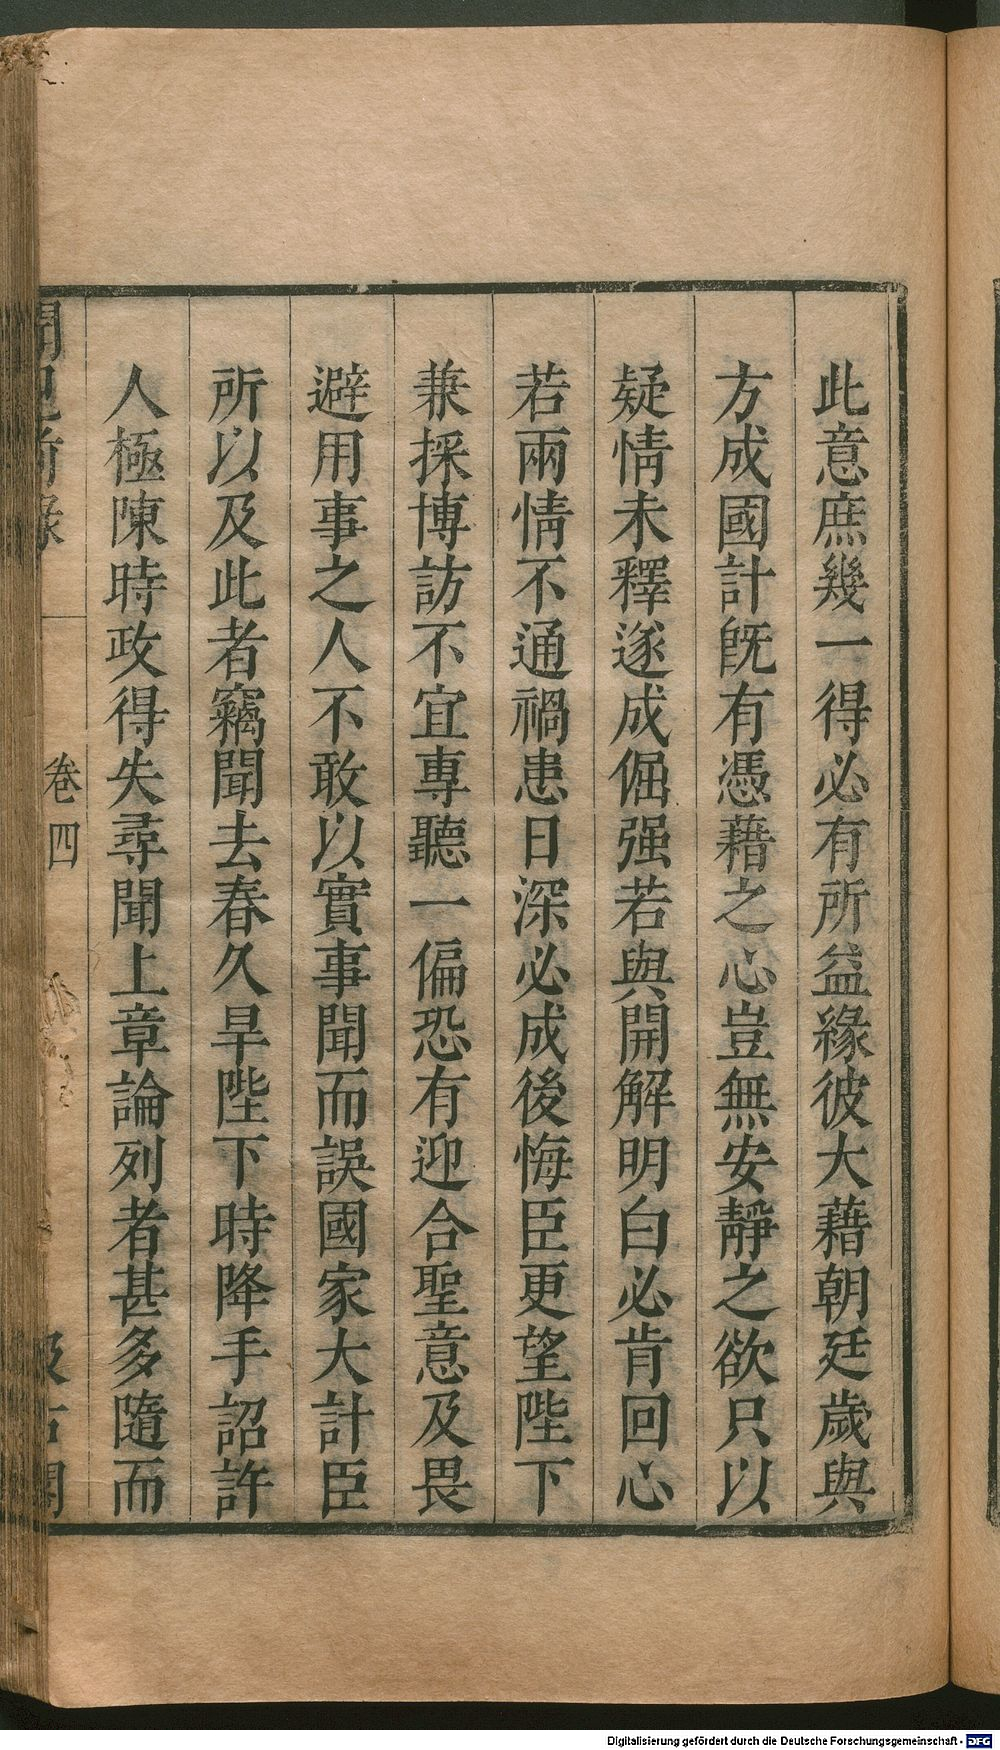 此意庶幾一得必有所益緣彼大藉朝廷歲與
方成國計旣有憑藉之心豈無安靜之欲只以
疑情未釋遂成倔强若與開解明白必肯回心
若兩情不通禍患日深必成後悔臣更望陛下
兼採博訪不宜專聽一偏恐有迎合聖意及畏
避用事之人不敢以實事聞而誤國家大計臣
所以及此者竊聞去春久旱陛下時降手詔許
人極陳時政得失尋聞上章論列者甚多隨而
聞見前錄
卷四
汲古閣
Digitalisierung gefördert durch die Deutsche Forschungsgemeinschaft - DFG